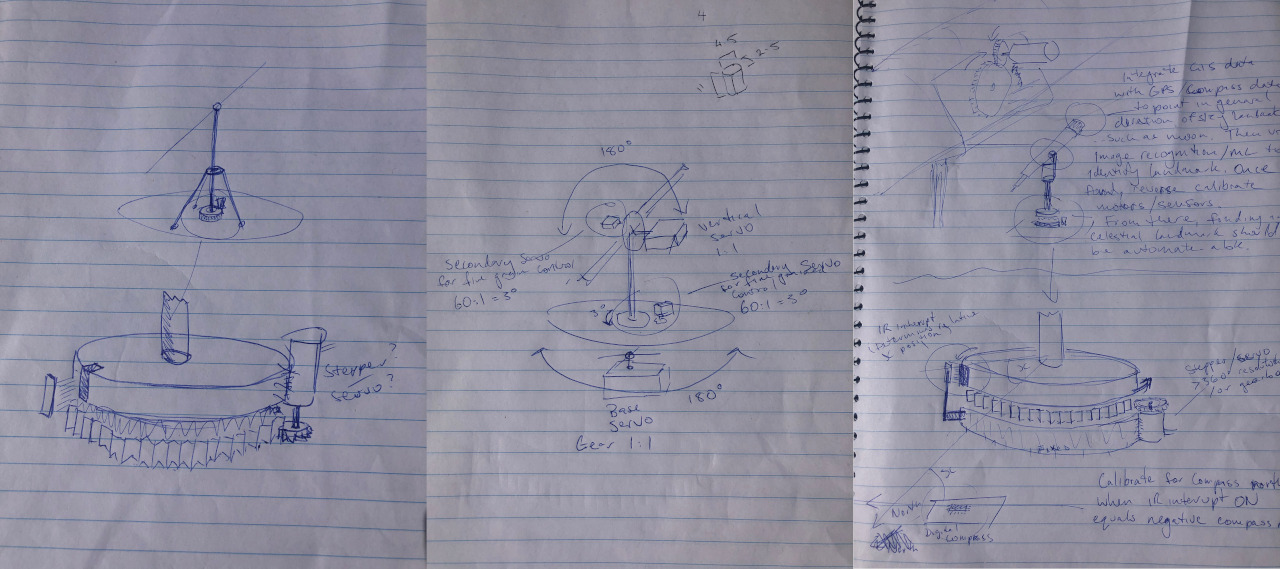 stepper?
servo?
4
4.5
2.5
180°
vertical
servo
1:1
Secondary servo
for fine grain control
60:1 = 3°
secondary servo
for fine grain
control
60:1 = 3°
3°
180°
Base
servo
Gear 1:1
Integrate GIS data
with GPS/Compass data
to point in general
direction of sky landmark
such as moon. Then
Image recognition/ML to
identify landmark. Once
found, reverse calibrate
motors/sensors.
From there, finding
celestial landmark should
be automateable.
IR interrupt
(determine relative
x position)
x
stepper/servo
>360° 
/or gearbox
Fixed
x°
North
Digital
Compass
North
Calibrate for compass north
when IR interrupt ON
equals negative compass